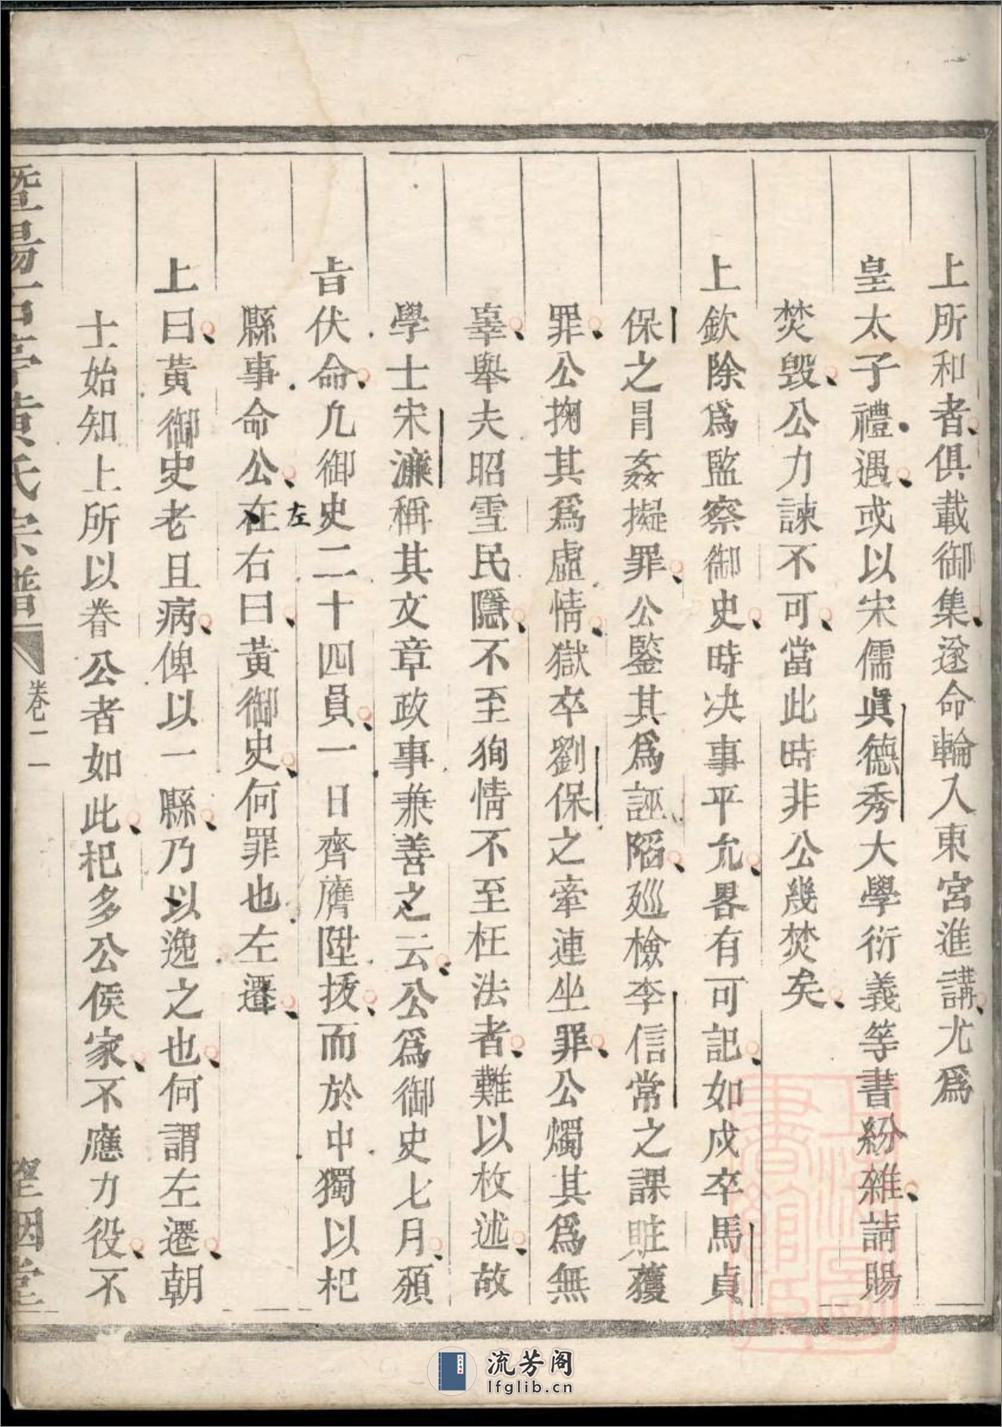 上所和者俱載御集遂命輪入東宮進講尤為
皇太子禮遇或以宋儒眞德秀大學衍義等書紛雜請賜
焚毀公力諫不可當此時非公幾焚矣
上欽除爲監察御史時決事平允畧有可記如戍卒馬貞
保之冒姦擬罪公鑒其爲誣陷廵檢李信常之課賍獲
罪公掬其爲虛情獄卒劉保之牽連坐罪公燭其爲無
辜舉夫昭雪民隱不至狥情不至枉法者難以枚述故
學士宋濂稱其文章政事兼善之云公爲御史七月頒
旨伏命凢御史二十四員一日齊膺陞拔而於中獨以杞
縣事命公在右曰黃御史何罪也左遷
左
上曰黃御史老且病俾以一縣乃以逸之也何謂左遷朝
士始知上所以眷公者如此杞多公侯家不應力役不
暨陽古亭黃氏宗譜
卷二
望烟堂
上海圖書館藏
流芳阁
lfglib.cn